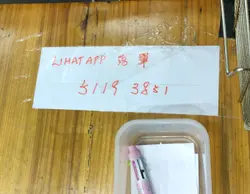 WHATAPP 落單
5119 3851